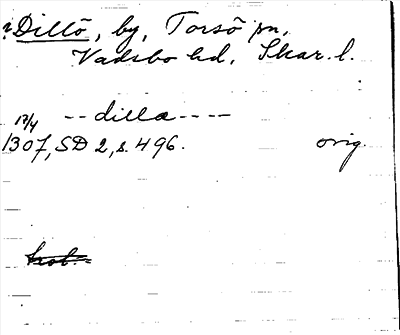 ? Dillö, by, Torsö sn,
Vadsbo hd, Skar. l.
17/4 -- dilla ----
1307, SD 2, s. 496. orig.